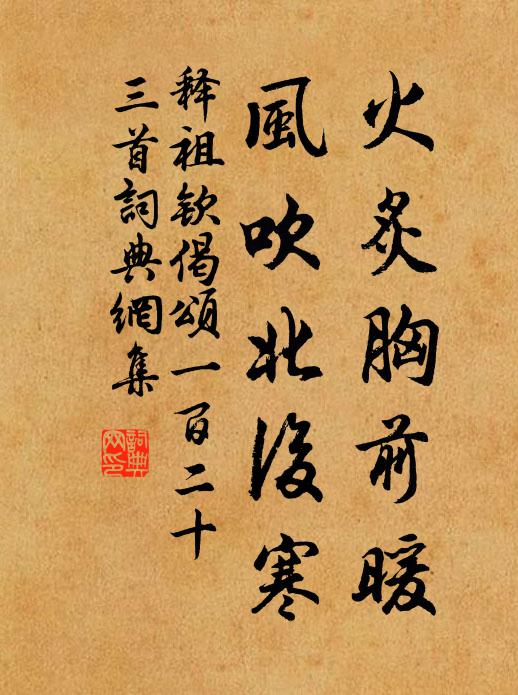 火炙胸前暖
風吹北後寒
释祖欽偈頌一百二十
三首詞典網集
詞典
网印